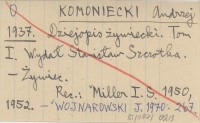 KOMONIECKI Andrzej
1937. Dziejopis żywiecki. Tom
I. Wydał Stanisław Szczotka.
- Żywiec.
Rec.: Miller I. S. 1950,
1952. - WOJNAROWSKI J. 1970: 267